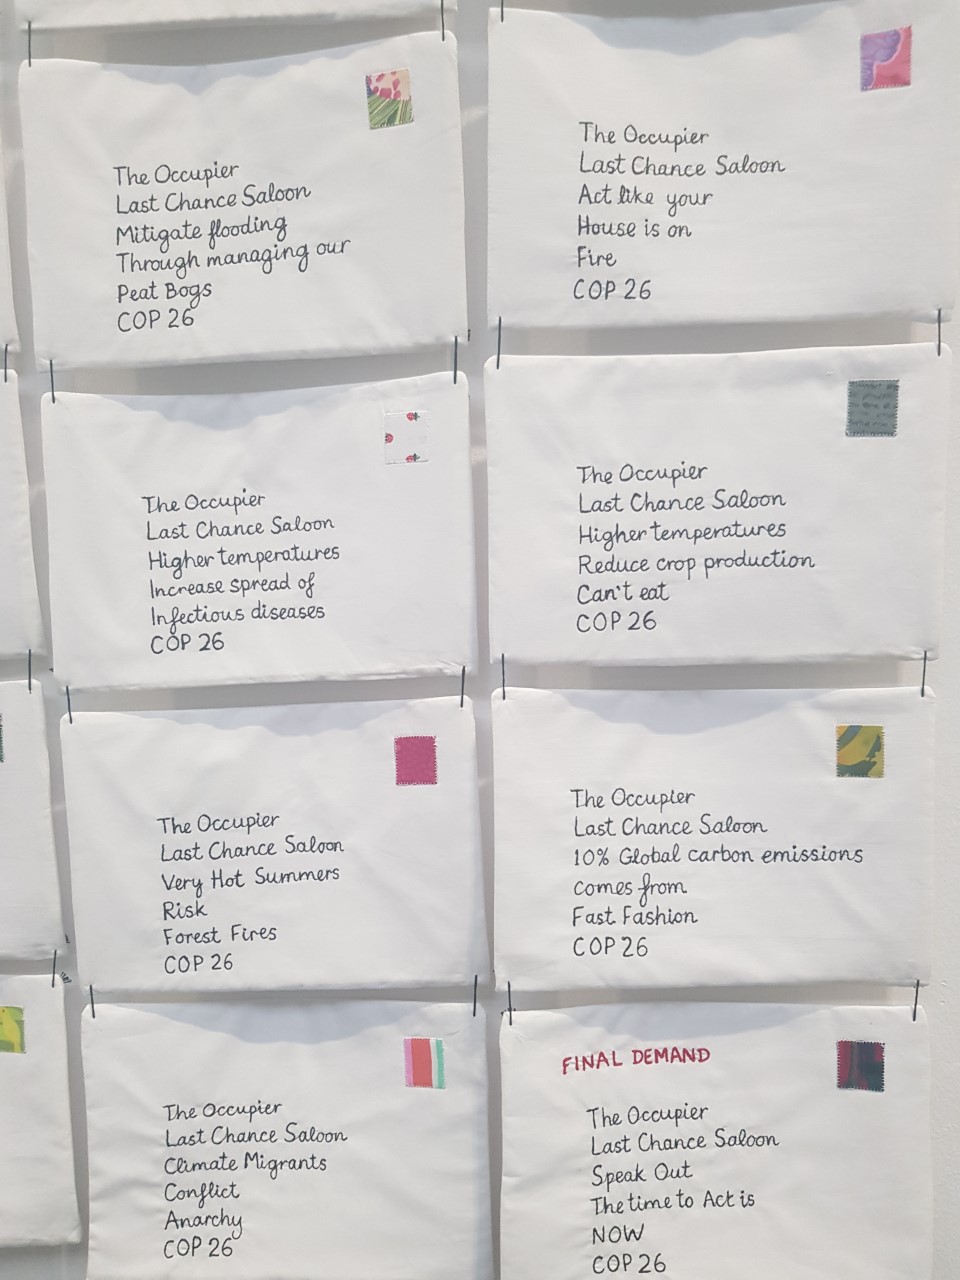 The Occupier
Last Chance Saloon
Mitigate flooding
Through managing our
Peat Bogs
COP 26
The Occupier
Last Chance Saloon
Act like your
House is on
Fire
COP 26
The Occupier
Last Chance Saloon
Higher temperatures
Increase spread of
Infectious diseases
COP 26
The Occupier
Last Chance Saloon
Higher temperatures
Reduce crop production
Can't eat
COP 26
The Occupier
Last Chance Saloon
Very Hot Summers
Risk
Forest Fires
COP 26
The Occupier
Last Chance Saloon
10% Global carbon emissions
comes from
Fast Fashion
COP 26
The Occupier
Last Chance Saloon
Climate Migrants
Conflict
Anarchy
COP 26
FINAL DEMAND
The Occupier
Last Chance Saloon
Speak Out
The time to Act is
NOW
COP 26